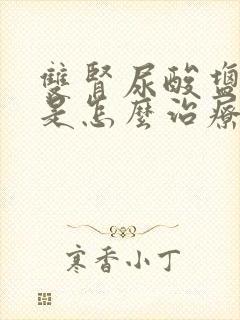 雙腎尿酸鹽
是怎麼治療
寒香小丁